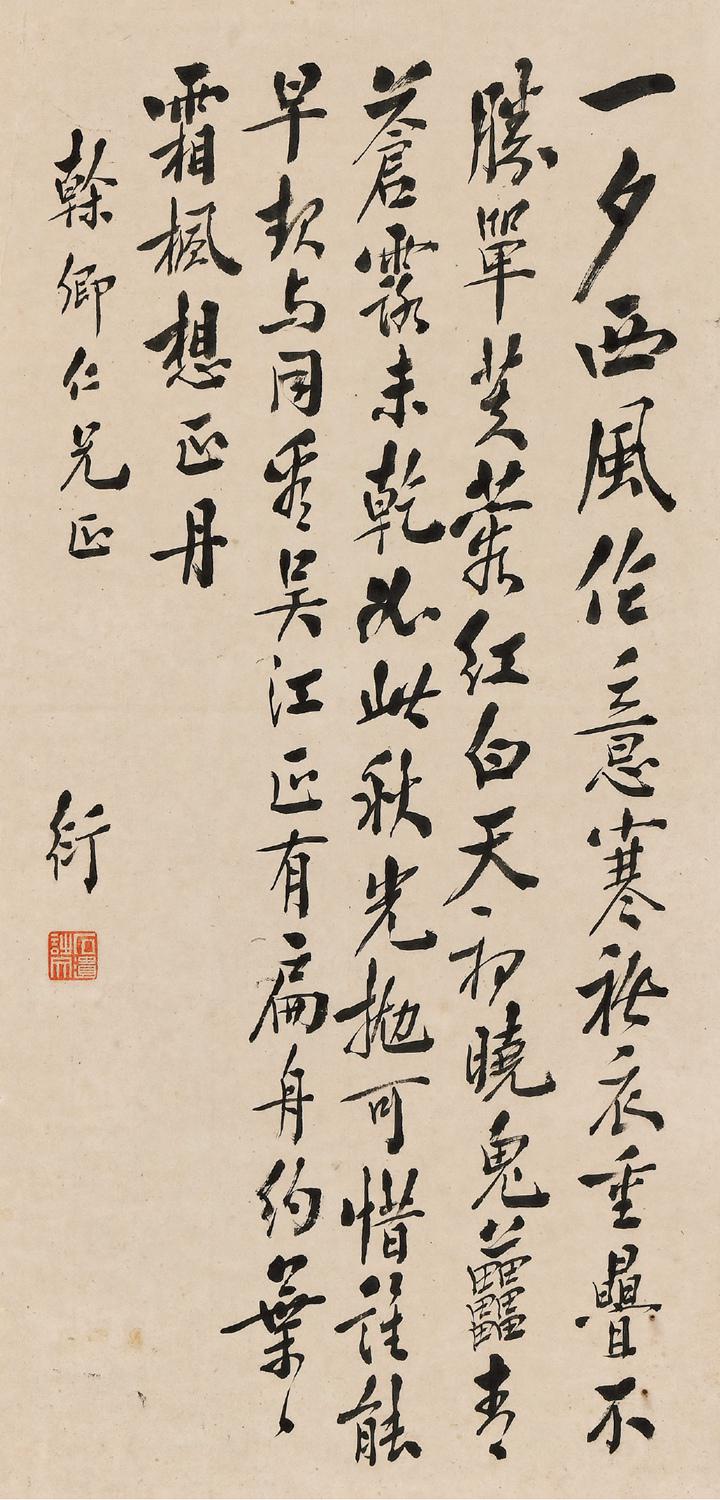 一夕西風作意寒袷衣重疊不
勝單芙蓉紅白天初曉鬼藟青
蒼露未乾如此秋光拋可惜誰能
早起与同看吳江正有扁舟約葉〻
霜楓想正丹
榦卿仁兄正
衍
石遺